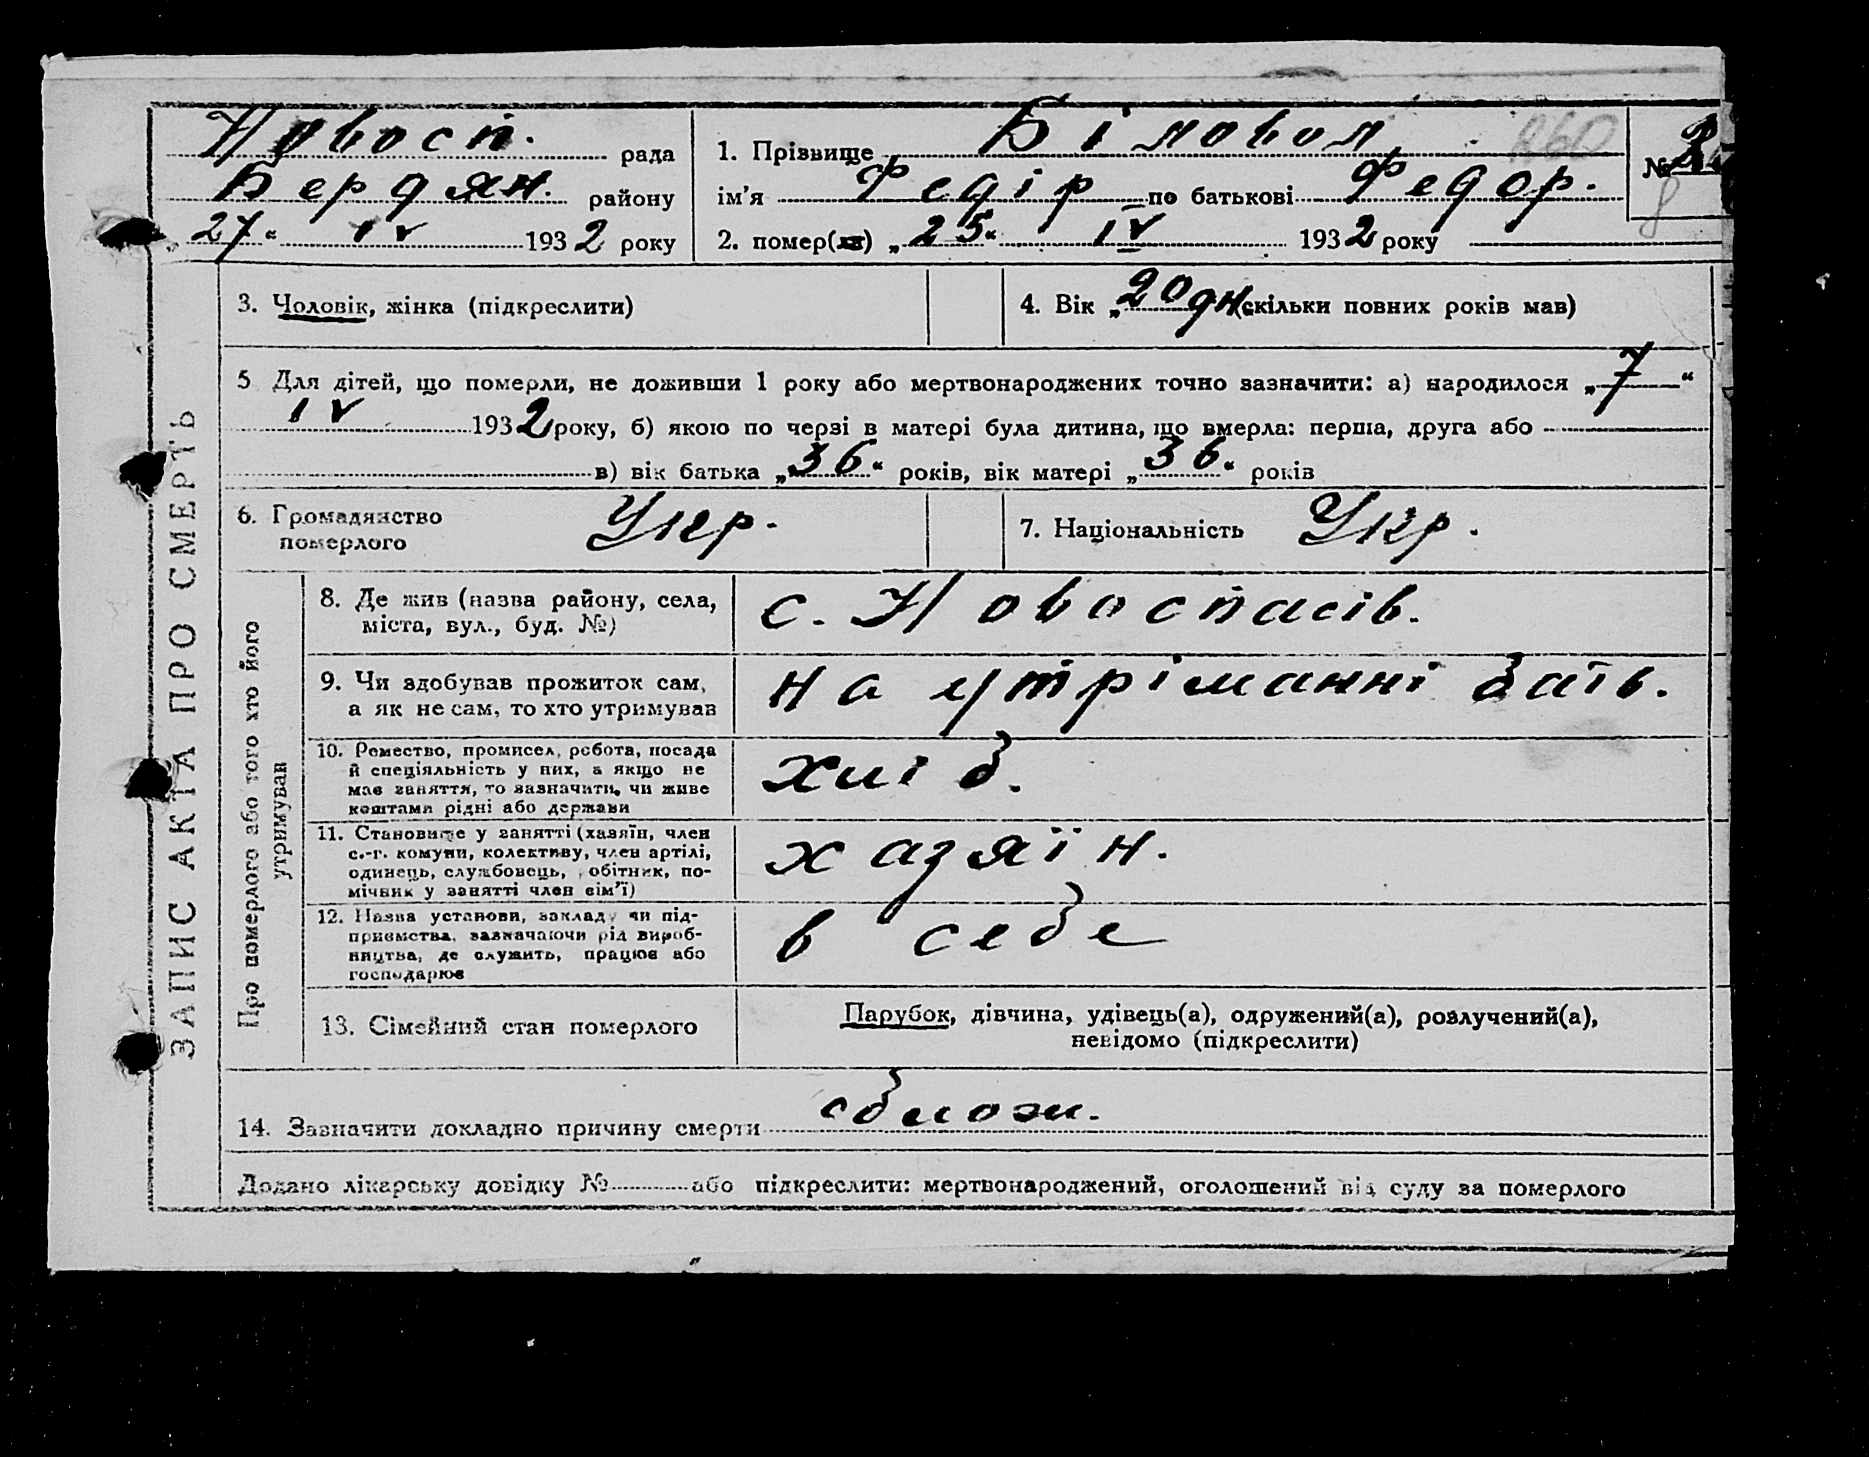 Новосп. рада
Бердян. району
„27“ IV 1932 року
1. Прізвище Біловол
ім’я Федір по батькові Федор.
2. помер(ла) „25“ IV 1932 року
№
8
3. Чоловік, жінка (підкреслити)
4. Вік „20 дн (скільки повних років мав)
5 Для дітей, що померли, не доживши 1 року або мертвонароджених точно зазначити: а) народилося „7“
IV 1932 року, б) якою по черзі в матері була дитина, що вмерла: перша, друга або
в) вік батька „36“ років, вік матері „36“ років
6. Громадянство
померлого
Укр.
7. Національність Укр.
ЗАПИС АКТА ПРО СМЕРТЬ
Про померлого або того хто його
утримував
8. Де жив (назва району, села,
міста, вул., буд. №)
с. Новоспасів.
9. Чи здобував прожиток сам,
а як не сам, то хто утримував
на утріманні батьв.
10. Ремество, промисел, робота, посада
й спеціяльність у них, а якщо не
має заняття, то зазначити, чи живе
коштами рідні або держави
хліб.
11. Становище у занятті (хазяїн, член
с.-г. комуни, колективу, член артілі,
одинець, службовець, робітник, по-
мічник у занятті член сім’ї)
хазяїн.
12. Назва установи, закладу чи під-
приємства, зазначаючи рід вироб-
ництва, де служить, працює або
господарює
в себе
13. Сімейний стан померлого
Парубок, дівчина, удівець(а), одружений(а), розлучений(а),
невідомо (підкреслити)
14. Зазначити докладно причину смерти
Додано лікарську довідку № або підкреслити: мертвонароджений, оголошений від суду за померлого